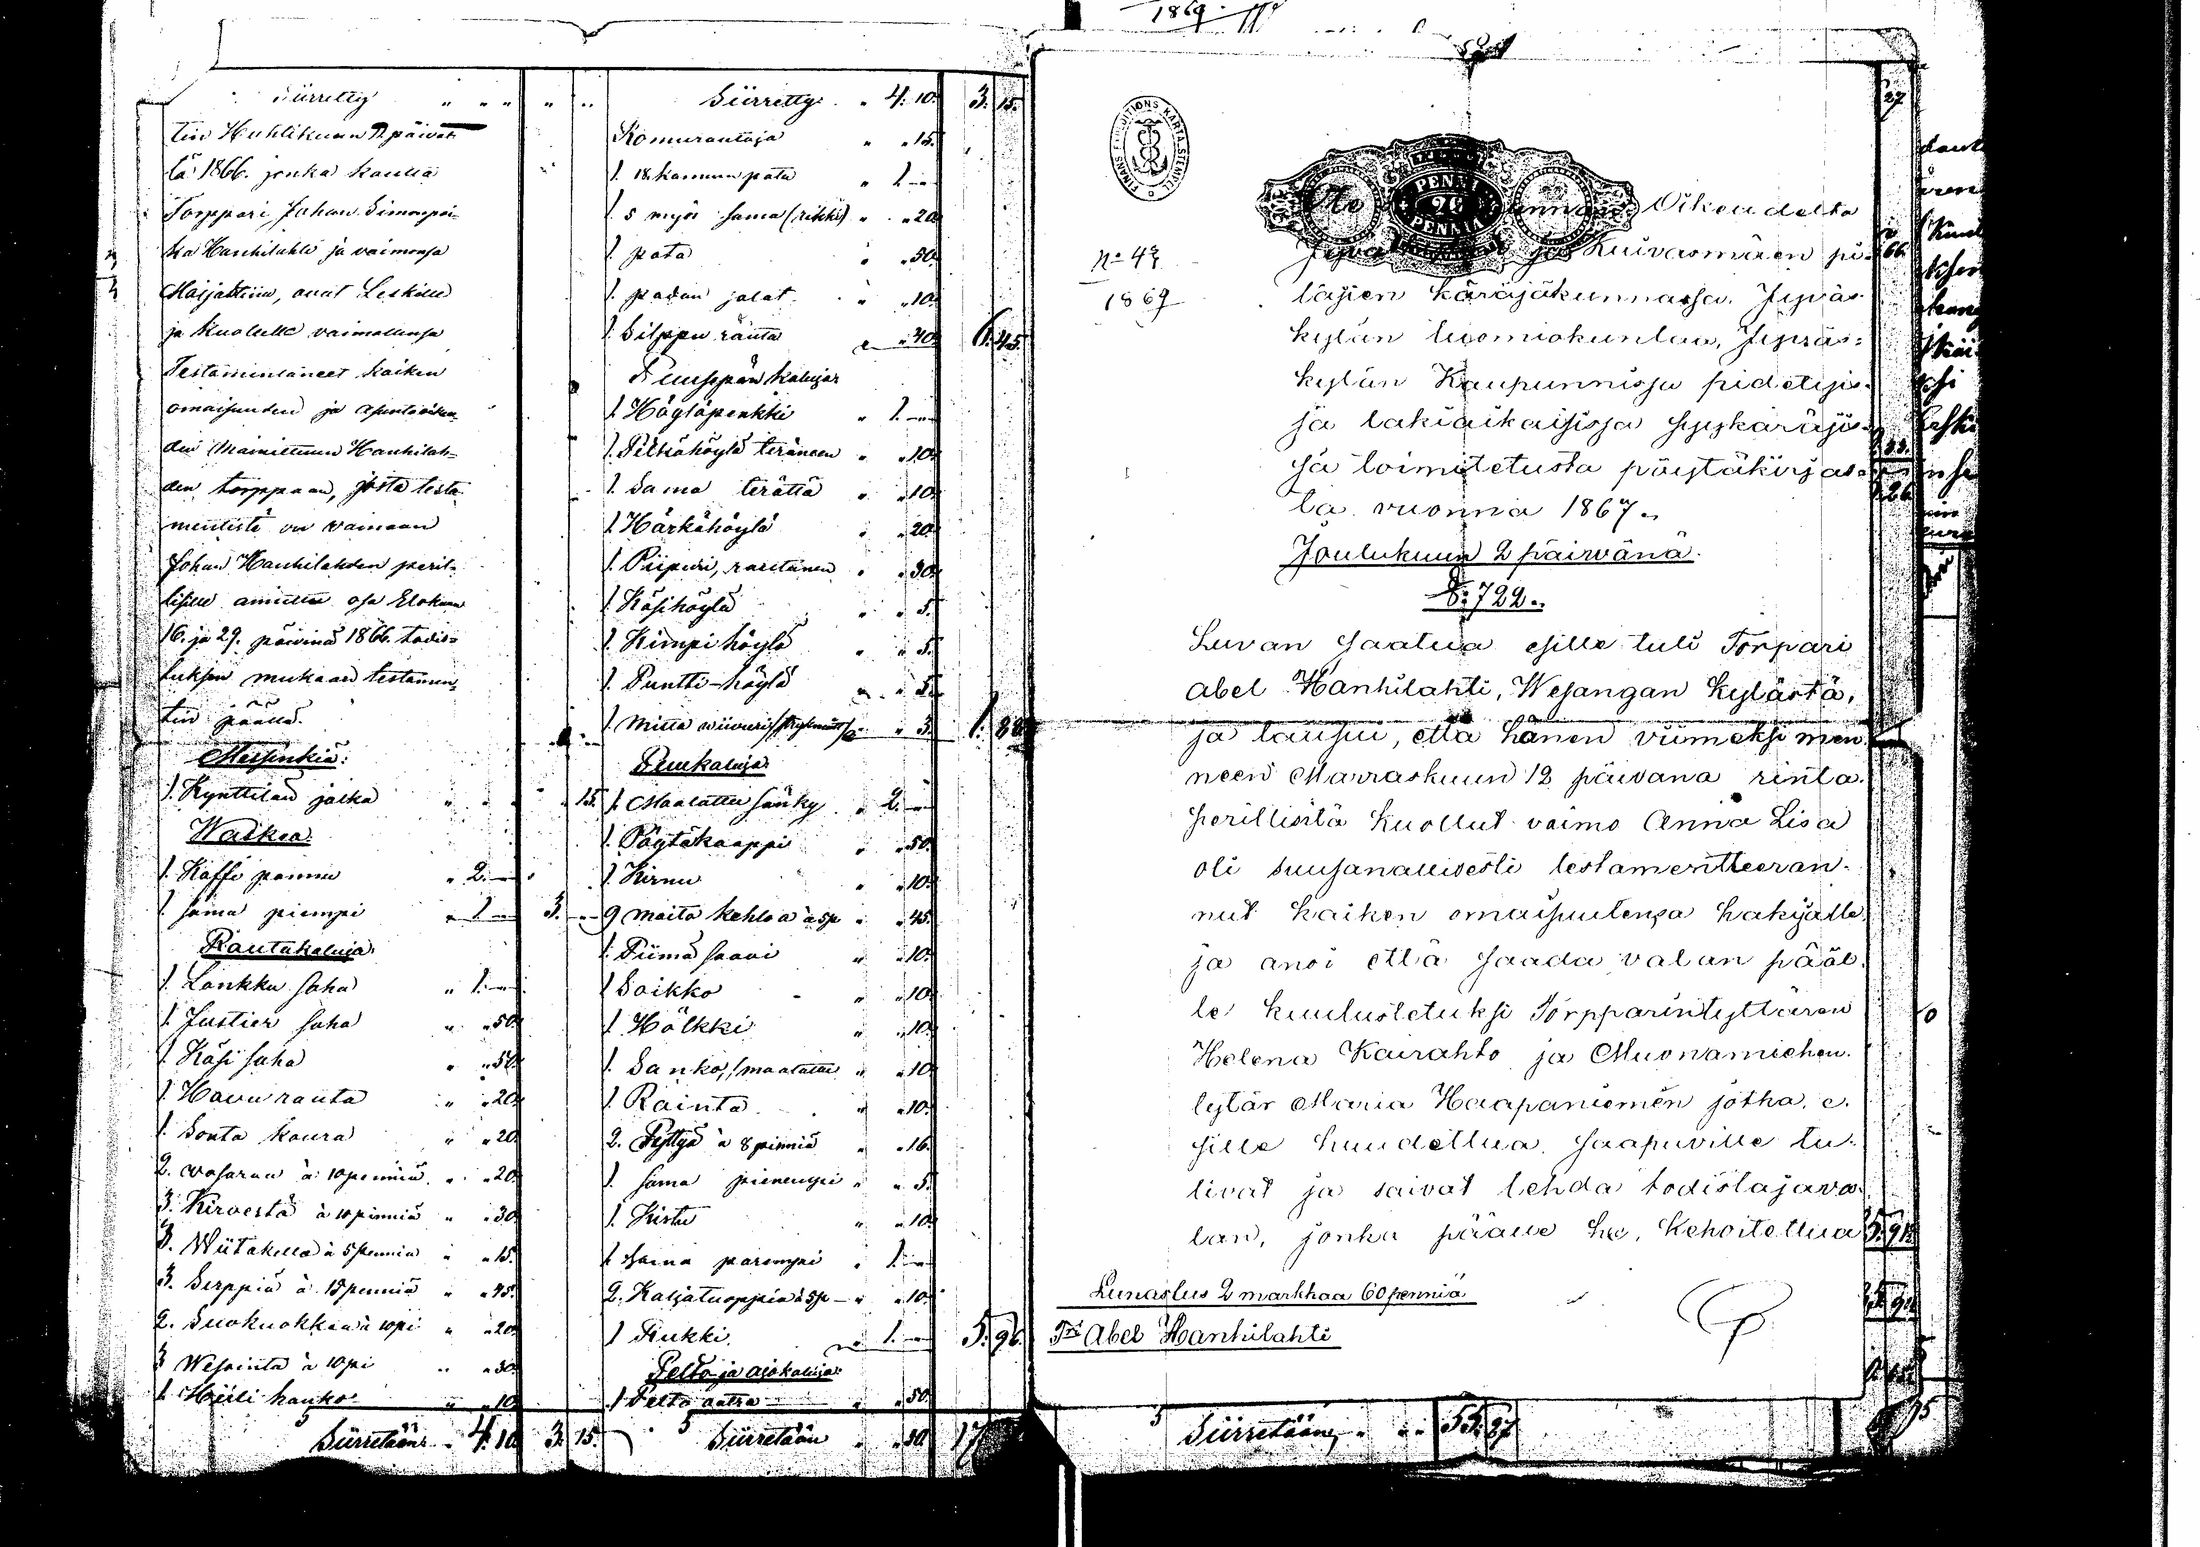 1869.
Siirretty " " " " "
tin Huhtikuun päivät
tä 1866. jonka kautta
Torppari Johan Simonpoi-
ka Hanhilahti ja vaimonsa
Maijastiina, ovat Leskelle
ja kuolulle vaimollensa
Testamintaneet kaiken
omaisuuden ja
den mainittuun Hanhilah-
den torppaan, josta testa
mentistä on vainaan
Johan Hanhilahden peril-
lisille annettu osa Elokuun
16. ja 29. päivinä 1866. todis-
tuksen mukaan testamen-
tin päällä.
Messinkiä:
1. Kynttilän jalka " " 15.
Waskea.
1. Kaffi pannu " 2. —
1 sama piempi " 1 — 3. —
Rautakaluja.
1. Lankku saha " 1. —
1. Justier saha " " 50.
1. Käsi saha " " 50.
1. Havu rauta " " 20.
1. Sonta koura " " 20.
2. vasaraa à 10 penniä " " 20.
3. Kirvestä à 10 penniä " " 30.
3. Wiitaketta à 5 penniä " " 15.
3. Serppiä à 15 penniä " " 45.
2. Suokuokkaa à 10 pi " " 20.
3 Wesointa à 10 pi " " 30.
1. Hiili hanko " " 10.
Siirretään " 4. 10. 3. 15.
Siirretty " 4. 10. 3. 15.
Komurautoja " " 15.
1. 18 kannun pata " 1. —
1. 5 myös sama (rikki) " " 20.
1. pata " " 50.
1. padan jalat " " 10.
1. Silppu rauta " " 40. 6. 45.
Puusepän kaluja
1. Höyläpenkki " 1. —
1. Pitkähöylä teräneen " " 10.
1. Sama terättä " " 10.
1. Härkähöylä " " 20.
1. Piipuri, rautanen " " 30.
1. Käsihöylä " " 5.
1. Kimpi höylä " " 5.
1. Puntti-höylä " " 5.
1. Mitta " " 3. 1. 88.
Puukaluja.
1. Maalattu sänky " 2. —
1. Pöytäkaappi " " 50.
1. Kirnu " " 10.
9 maito kehloa à 5 p " " 45.
1. Piimä saavi " " 10.
1 Saikko " " 10.
1 Hölkki " " 10.
1. Sanko, maalattu " " 10.
1. Rainta " " 10.
2. Pyttyä à 8 penniä " " 16.
1. sama pienempi " " 5.
1. Kirstu " " 10.
1 sama parempi " 1. —
2. Kaljatuoppia à 5 p " " 10.
1 Rukki. " 1. — 5. 96.
Pelto ja ajokaluja.
1 Pelto aatra " " 50.
Siirretään " " 50. 17
FINANS EXPEDITIONS KARTA STEMPEL
PENNI
20
PENNIÄ
Oikeudelta
ja Kuivasmäen pi-
täjien käräjäkunnassa. Jyväs-
kylän tuomiokuntaa, Jyväs-
kylän Kaupunnissa pidetyis-
sä lakiaikaisissa syyskäräjis-
sä toimitetusta pöytäkirjas-
ta vuonna 1867.
No 47
1869
Joulukuun 2 päivänä.
§: 722.
Luvan saatua esille tuli Torpari
Abel Hanhilahti, Wesangan Kylästä,
ja lausui, että hänen viimeksi men
neen Marraskuun 12 päivänä rinta
perillisitä kuollut vaimo Anna Lisa
oli suusanallisesti testamentteeran-
nut kaiken omaisuutensa hakijalle
ja anoi että saada valan pääl
le kuulustetuksi Torpparintyttären
Helena Kairahto ja Muonamiehen
tytär Maria Haapaniemen jotka, e-
sille huudettua, saapuville tu-
livat ja saivat tehdä todistajava
lan, jonka päälle he, kehoitettua
Lunastus 2 markkaa 60 penniä
Tri Abel Hanhilahti
Siirretään, " " 55. 87